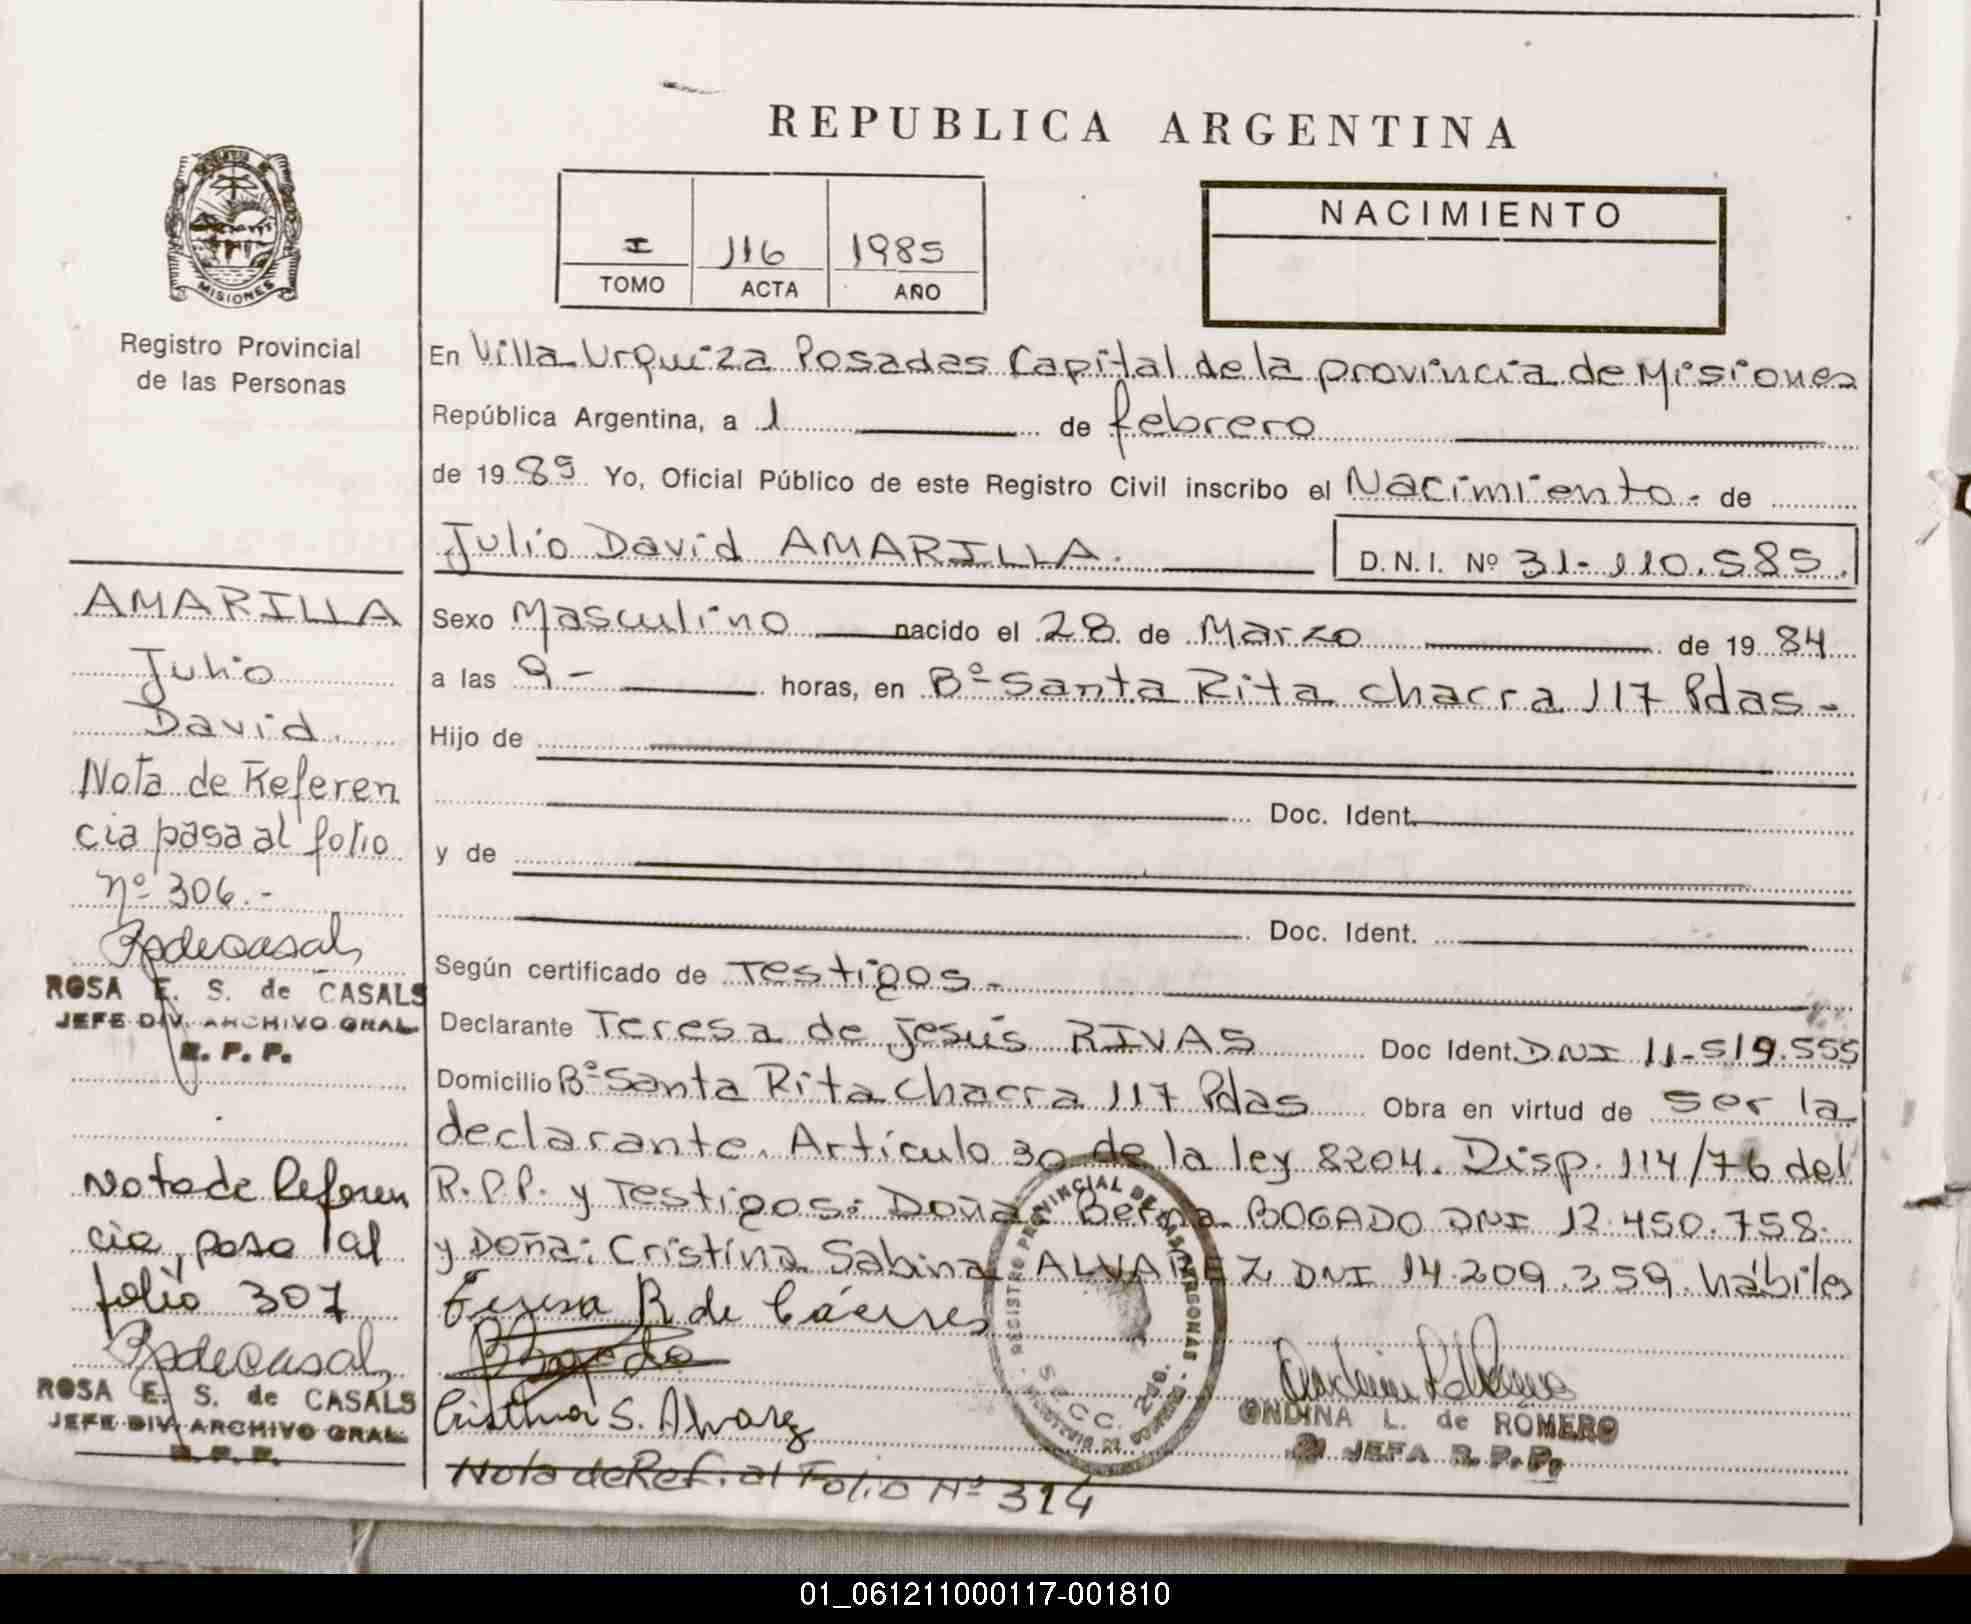 REPUBLICA ARGENTINA
MISIONES
Registro Provincial
de las Personas
I 116 1985
TOMO ACTA AÑO
NACIMIENTO
En Villa Urquiza Posadas Capital de la provincia de Misiones
República Argentina, a 1 de febrero
de 1985 Yo, Oficial Público de este Registro Civil inscribo el Nacimiento.- de
Julio David AMARILLA. D.N.I. Nº 31-110.585.
Sexo Masculino nacido el 28 de Marzo de 1984
a las 9- horas, en Bº Santa Rita chacra 117 Pdas-
Hijo de
Doc. Ident.
y de
Doc. Ident.
Según certificado de Testigos-
Declarante Teresa de Jesús RIVAS Doc Ident. DNI 11-519.555
Domicilio Bº Santa Rita chacra 117 Pdas Obra en virtud de ser la
declarante. Artículo 30 de la ley 8204. Disp. 114/76 del
R.P.P. y Testigos: Doña: Berta BOGADO DNI 12.450.758.
y Doña: Cristina Sabina ALVAREZ DNI 14.209.359. hábiles
Teresa R de Cáceres
Cristina S. Alvarez
Nota de Ref. al Folio Nº 314
REGISTRO PROVINCIAL DE LAS PERSONAS
S. C. C. 2do.
ONDINA L. de ROMERO
JEFA R. P. P.
AMARILLA
Julio
David.
Nota de Referen
cia pasa al folio
nº 306.-
ROSA E. S. de CASALS
JEFE DIV. ARCHIVO GRAL.
R. P. P.
Nota de Referen
cia, pasa al
folio 307
ROSA E. S. de CASALS
JEFE DIV. ARCHIVO GRAL.
R. P. P.
01_061211000117-001810